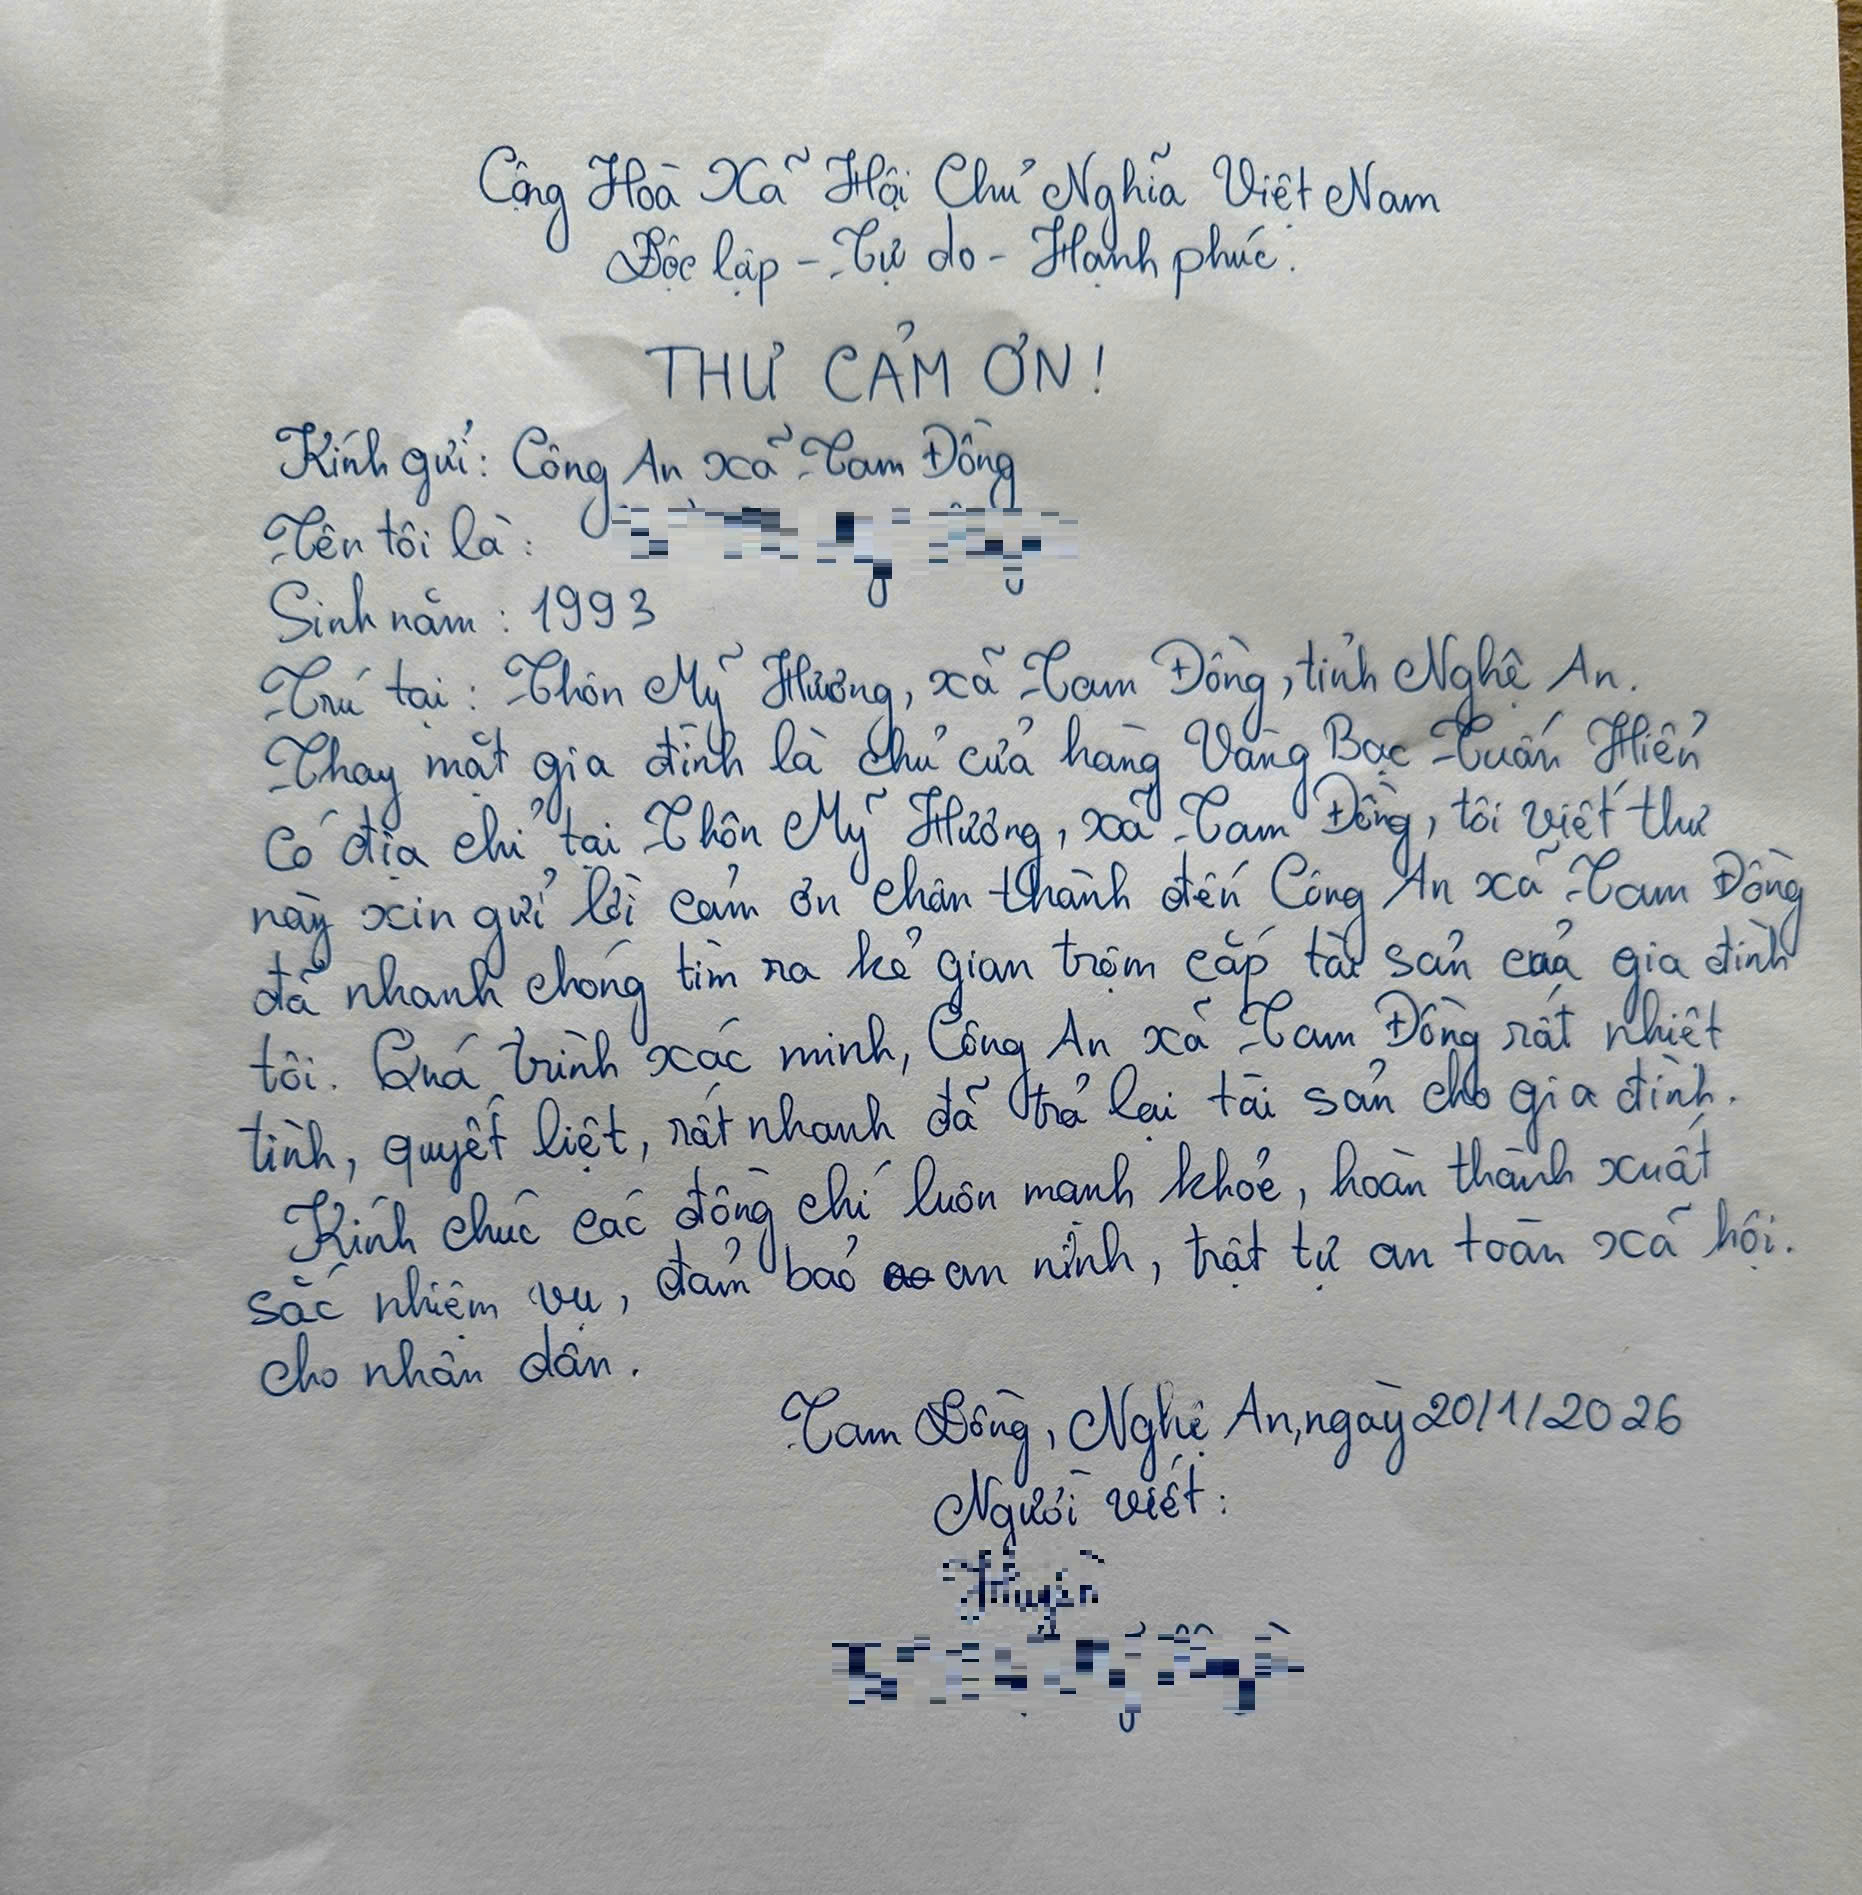 Cộng Hoà Xã Hội Chủ Nghĩa Việt Nam
Độc lập - Tự do - Hạnh phúc.
THƯ CẢM ƠN!
Kính gửi: Công An xã Tam Đồng
Tên tôi là:
Sinh năm: 1993
Trú tại: Thôn Mỹ Hương, xã Tam Đồng, tỉnh Nghệ An.
Thay mặt gia đình là chủ cửa hàng Vàng Bạc Tuấn Hiền
có địa chỉ tại Thôn Mỹ Hương, xã Tam Đồng, tôi viết thư
này xin gửi lời cảm ơn chân thành đến Công An xã Tam Đồng
đã nhanh chóng tìm ra kẻ gian trộm cắp tài sản của gia đình
tôi. Quá trình xác minh, Công An xã Tam Đồng rất nhiệt
tình, quyết liệt, rất nhanh đã trả lại tài sản cho gia đình.
Kính chúc các đồng chí luôn mạnh khỏe, hoàn thành xuất
sắc nhiệm vụ, đảm bảo an ninh, trật tự an toàn xã hội.
cho nhân dân.
Tam Đồng, Nghệ An, ngày 20/1/2026
Người viết: